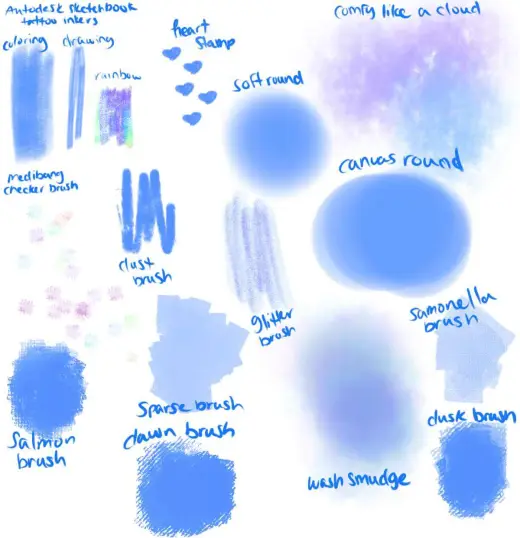 Autodesk sketchbook
tattoo inkers
coloring
drawing
rainbow
heart
stamp
comfy like a cloud
soft round
canvas round
medibang
checker brush
dust
brush
glitter
brush
samonella
brush
Sparse brush
dawn brush
Salmon
brush
wash smudge
dusk brush